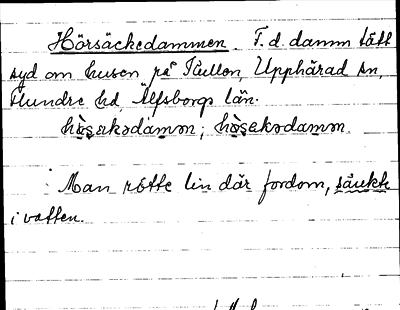 Hörsäckedammen. F.d. damm tätt
syd om husen på Kullen, Upphärad sn,
Flundre hd, Älfsborgs län.
Man rötte lin där fordom, sänkte
i vatten.